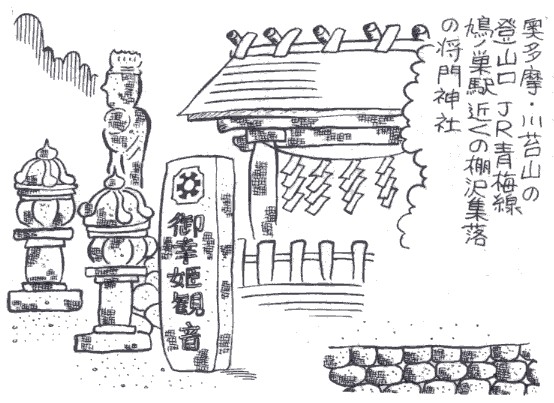 奥多摩・川苔山の
登山口 JR青梅線
鳩ノ巣駅近くの棚沢集落
の将門神社
御幸姫観音